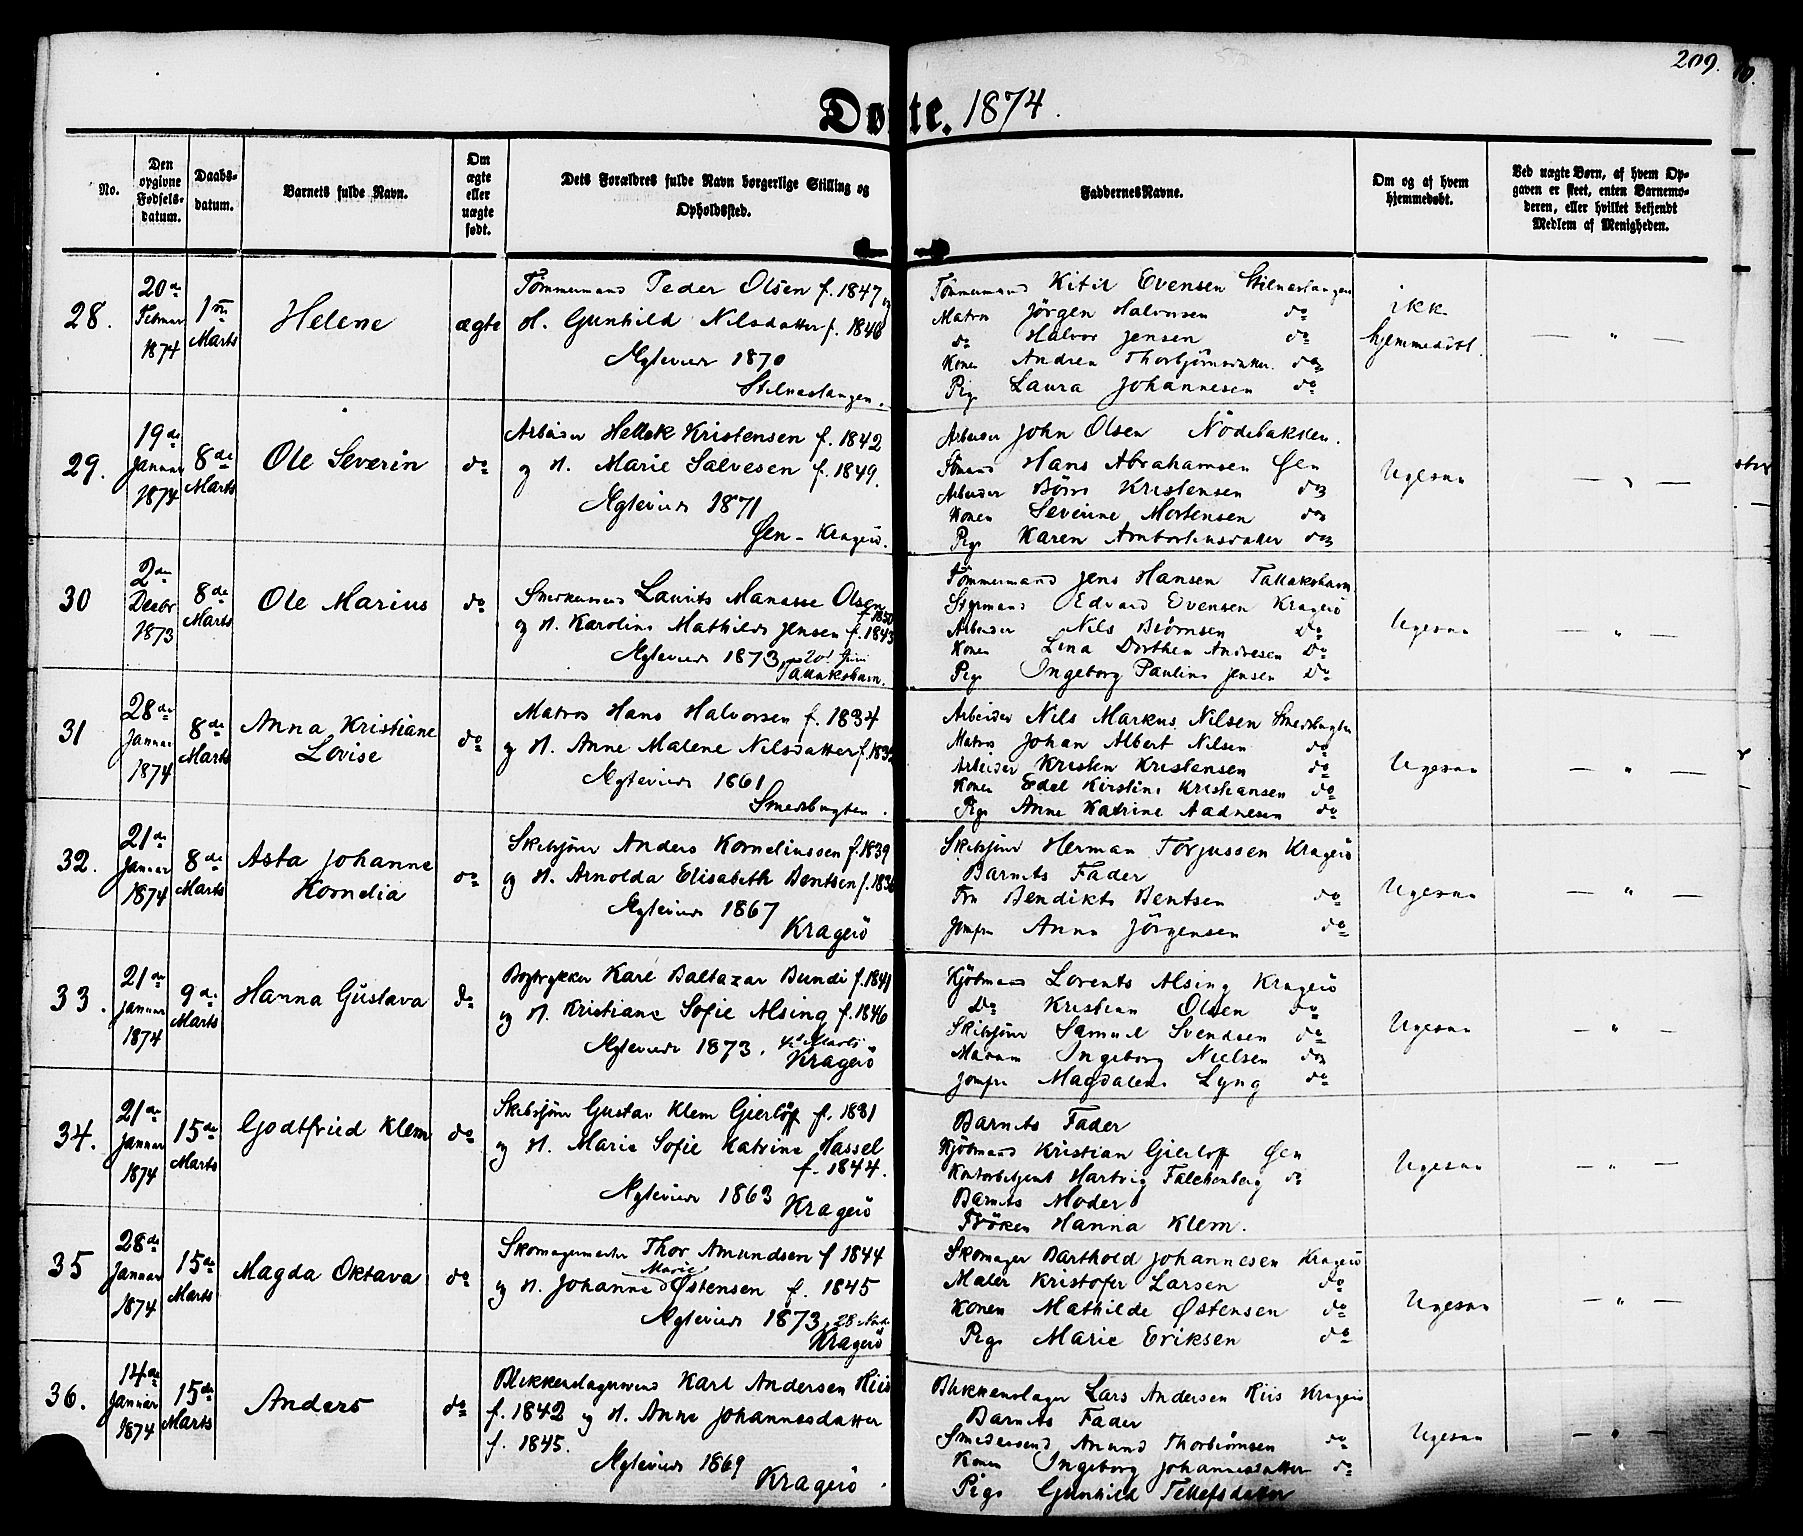 209.
Døbte. 1874.
No.
Den opgivne Fødsels-datum.
Daabs-datum.
Barnets fulde Navn.
Om ægte eller uægte født.
Dets Forældres fulde Navn borgerlige Stilling og Opholdssted.
Faddernes Navne.
Om og af hvem hjemmedøbt.
Ved uægte Børn, af hvem Op-
gaven er skeet, enten Barnemo-
deren, eller hvilket bekjendt
Medlem af Menigheden.
28.
20de Februar 1874
1ste Marts
Helene
ægte
Tömmermand Peder Olsen f. 1847 og
H. Gunhild Nilsdatter f. 1846
Ægteviede 1870
Stilnestangen.
Tömmermand Kitil Evensen Stilnestangen
Matros Jörgen Halvorsen do
do Halvor Jensen do
Konen Andrea Thorbjörnsdatter do
Pige Laura Johannesen do
ikke
hjemmedöbt.
— " —
29.
19de Januar 1874
8de Marts
Ole Severin
do
Arbeider Hellek Kristensen f. 1842
og H. Marie Salvesen f. 1849.
Ægteviede 1871
Øen - Kragerö.
Arbeider John Olsen Nödebakken.
Sömand Hans Abrahamsen Øen
Arbeider Börre Kristensen do
Konen Severine Mortensen do
Pige Karen do
Ligesaa
— " —
30
2den Decbr 1873
8de Marts
Ole Marius
do
Laurits Manasse Olsen f. 1850
og H. Karoline Mathilde Jensen f. 1843
Ægteviede 1873, 20d Juni
Tallakshavn.
Tömmermand Jens Hansen Tallakshavn
Styrmand Edvard Evensen Kragerö
Arbeider Nils Biörnsen Do
Konen Lina Dorthea Andresen Do
Pige Ingeborg Pauline Jensen Do
Ligesaa
— " —
31
28de Januar 1874
8de Marts
Anna Kristiane
Lovise
do
Matros Hans Halvorsen f. 1834
og H. Anne Malene Nilsdatter
Ægteviede 1861
Smedsbugten.
Arbeider Nils Markus Nilsen Smedsbugten
Matros Johan Albert Nilsen do
Arbeider Kristen Kristensen do
Konen Edel Kirstine Kristiansen do
Pige Anne Katrine Aadnesen do
Ligesaa
— " —
32.
21de Januar 1874
8de Marts
Asta Johanne
Kornelia
do
Skibsförer Anders Korneliussen f. 1839
og H. Arnolda Elisabeth Bentsen
Ægteviede 1867
Kragerö
Skibsförer Herman Torjussen Kragerö
Barnets Fader
Fru Bendikte Bentsen do
Jomfru Anna Jörgensen do
Ligesaa
— " —
33.
21de Januar 1874
9de Marts
Hanna Gustava
do
Bogtrykker Karl Baltazar Bundi f. 1841
og H. Kristiane Sofie Alsing f. 1846
Ægteviede 1873. Marts
Kragerö
Kjöbmand Lorents Alsing Kragerö
Do Kristian Olsen do
Skibsförer Samuel Svendsen do
Madam Ingeborg Nielsen do
Jomfru Magdalene Lyng do
Ligesaa
— " —
34.
21de Januar 1874
15de Marts
Godtfried Klem
do
Skibsförer Gustav Klem Gierlöff f. 1831
og H. Marie Sofie Katrine Hassel
f. 1844.
Ægteviede 1863 Kragerö
Barnets Fader
Kjöbmand Kristian Gierlöff Øen
Kontorbetjent Hartvig Falchenberg do
Barnets Moder
Fröken Hanna Klem.
Ligesaa
— " —
35
28de Januar 1874
15de Marts
Magda Oktava
do
Skomagermester Thor Amundsen f 1844
og H. Johanne Marie Østensen f. 1845
Ægteviede 1873, 28
Kragerö
Skomager Barthold Johannesen Kragerö
Maler Kristofer Larsen do
Konen Mathilde Østensen do
Pige Marie Eriksen do
Ligesaa
— " —
36.
14de Januar 1874
15de Marts
Anders
do
Blikkenslagersvend Karl Andersen Riis
f. 1842 og H. Anne Johannesdatter
f. 1845.
Ægteviede 1869
Kragerö.
Blikkenslager Lars Andersen Riis Kragerö
Barnets Fader
Smedesvend Amund Thorbiörnsen do
Konen Ingeborg Johannesdatter do
Pige Gunhild Tellefsdatter
Ligesaa
— " —